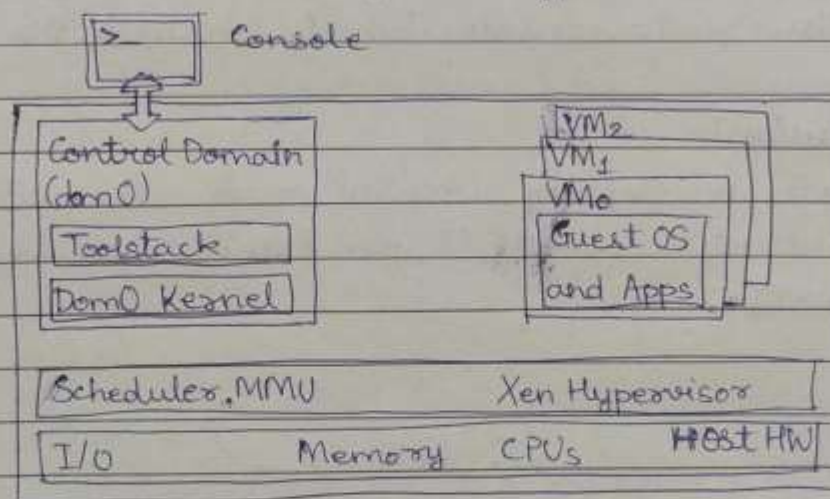 >_ Console
Control Domain
(dom0)
Toolstack
Dom0 Kernel
VM2
VM1
VM0
Guest OS
and Apps
Scheduler, MMU Xen Hypervisor
I/O Memory CPUs Host HW